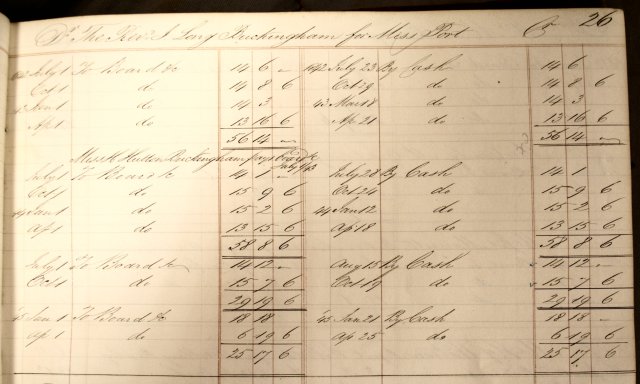 Dr The Revd J Long Buckingham for Miss Port Cr 26
1842 July 1 To Board &c 14 6 – 1842 July 23 By Cash 14 6
Oct 1 do 14 8 6 Oct 19 do 14 8 6
43 Jany 1 do 14 3 43 Mar 18 do 14 3
Ap 1 do 13 16 6 Ap 21 do 13 16 6
56 14 – 56 14 –
Miss H Hutton Buckingham pays Board &c
July 1/43
July 1 To Board &c 14 1 – July 28 By Cash 14 1
Oct 1 do 15 9 6 Oct 24 do 15 9 6
44 Jan 1 do 15 2 6 44 Jan 12 do 15 2 6
Ap 1 do 13 15 6 Ap 18 do 13 15 6
58 8 6 58 8 6
July 1 To Board &c 14 12 – Aug 13 By Cash 14 12 –
Oct 1 do 15 7 6 Oct 19 do 15 7 6
29 19 6 29 19 6
45 Jan 1 To Board &c 18 18 45 Jan 21 By Cash 18 18 –
Ap 1 do 6 19 6 Ap 25 do 6 19 6
25 17 6 25 17 6